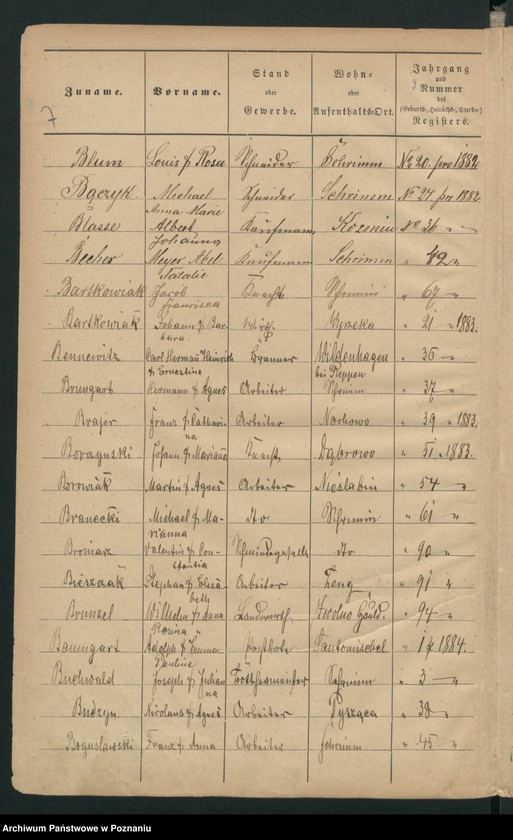 7
Zuname. Vorname. Stand oder Gewerbe. Wohn- oder Aufenthalts-Ort. Jahrgang und Nummer des (Geburts-, Heiraths-, Sterbe-) Registers.
Blum Louis & Rosa Schneider Schrimm No 20. pro 1882
Bączyk Michael Schneider Schrimm No 27 pro 1882.
Anna Marie
Blasse Albert Kaufmann Kozmin No 36 - -
Johanna
Becher Meyer Abel Kaufmann Schrimm " 42 "
Natalie
Bartkowiak Jacob Knecht Schrimm " 67 - "
Francisca
Bartkowiak Johann & Bar- Wirth " 21 - " 1883.
bara.
Bennewitz Carl Hermann Heinrich Brenner Wildenhagen " 36 - "
& Ernestine bei Reppen
Brungart Hermann & Agnes Arbeiter Schrimm " 37 "
Franz & Cathari- Arbeiter Nochowo " 39 " 1883.
na
Johann & Marianna Knecht Dąbrowo " 51 " 1883.
Borowiak Martin & Agnes Arbeiter Nieslabin " 54 - "
Branecki Michael & Ma- dto Schrimm " 61 "
rianna
Valentin & Con- Schmiedegeselle dto " 90 - "
stantia
Stephan & Elisa- Arbeiter " 91 "
beth
Wilhelm & Anna Landwirth " 94 - "
Rosina "
Baumgart Adolph & Emma Postbote " 1 pr 1884.
Pauline
Buchwald Joseph & Julian Schrimm " 3 - "
na
Budzyn Nicolaus & Agnes Arbeiter Pysząca " 38 "
Boguslawski Franz & Anna Arbeiter Schrimm " 45 "
Archiwum Państwowe w Poznaniu